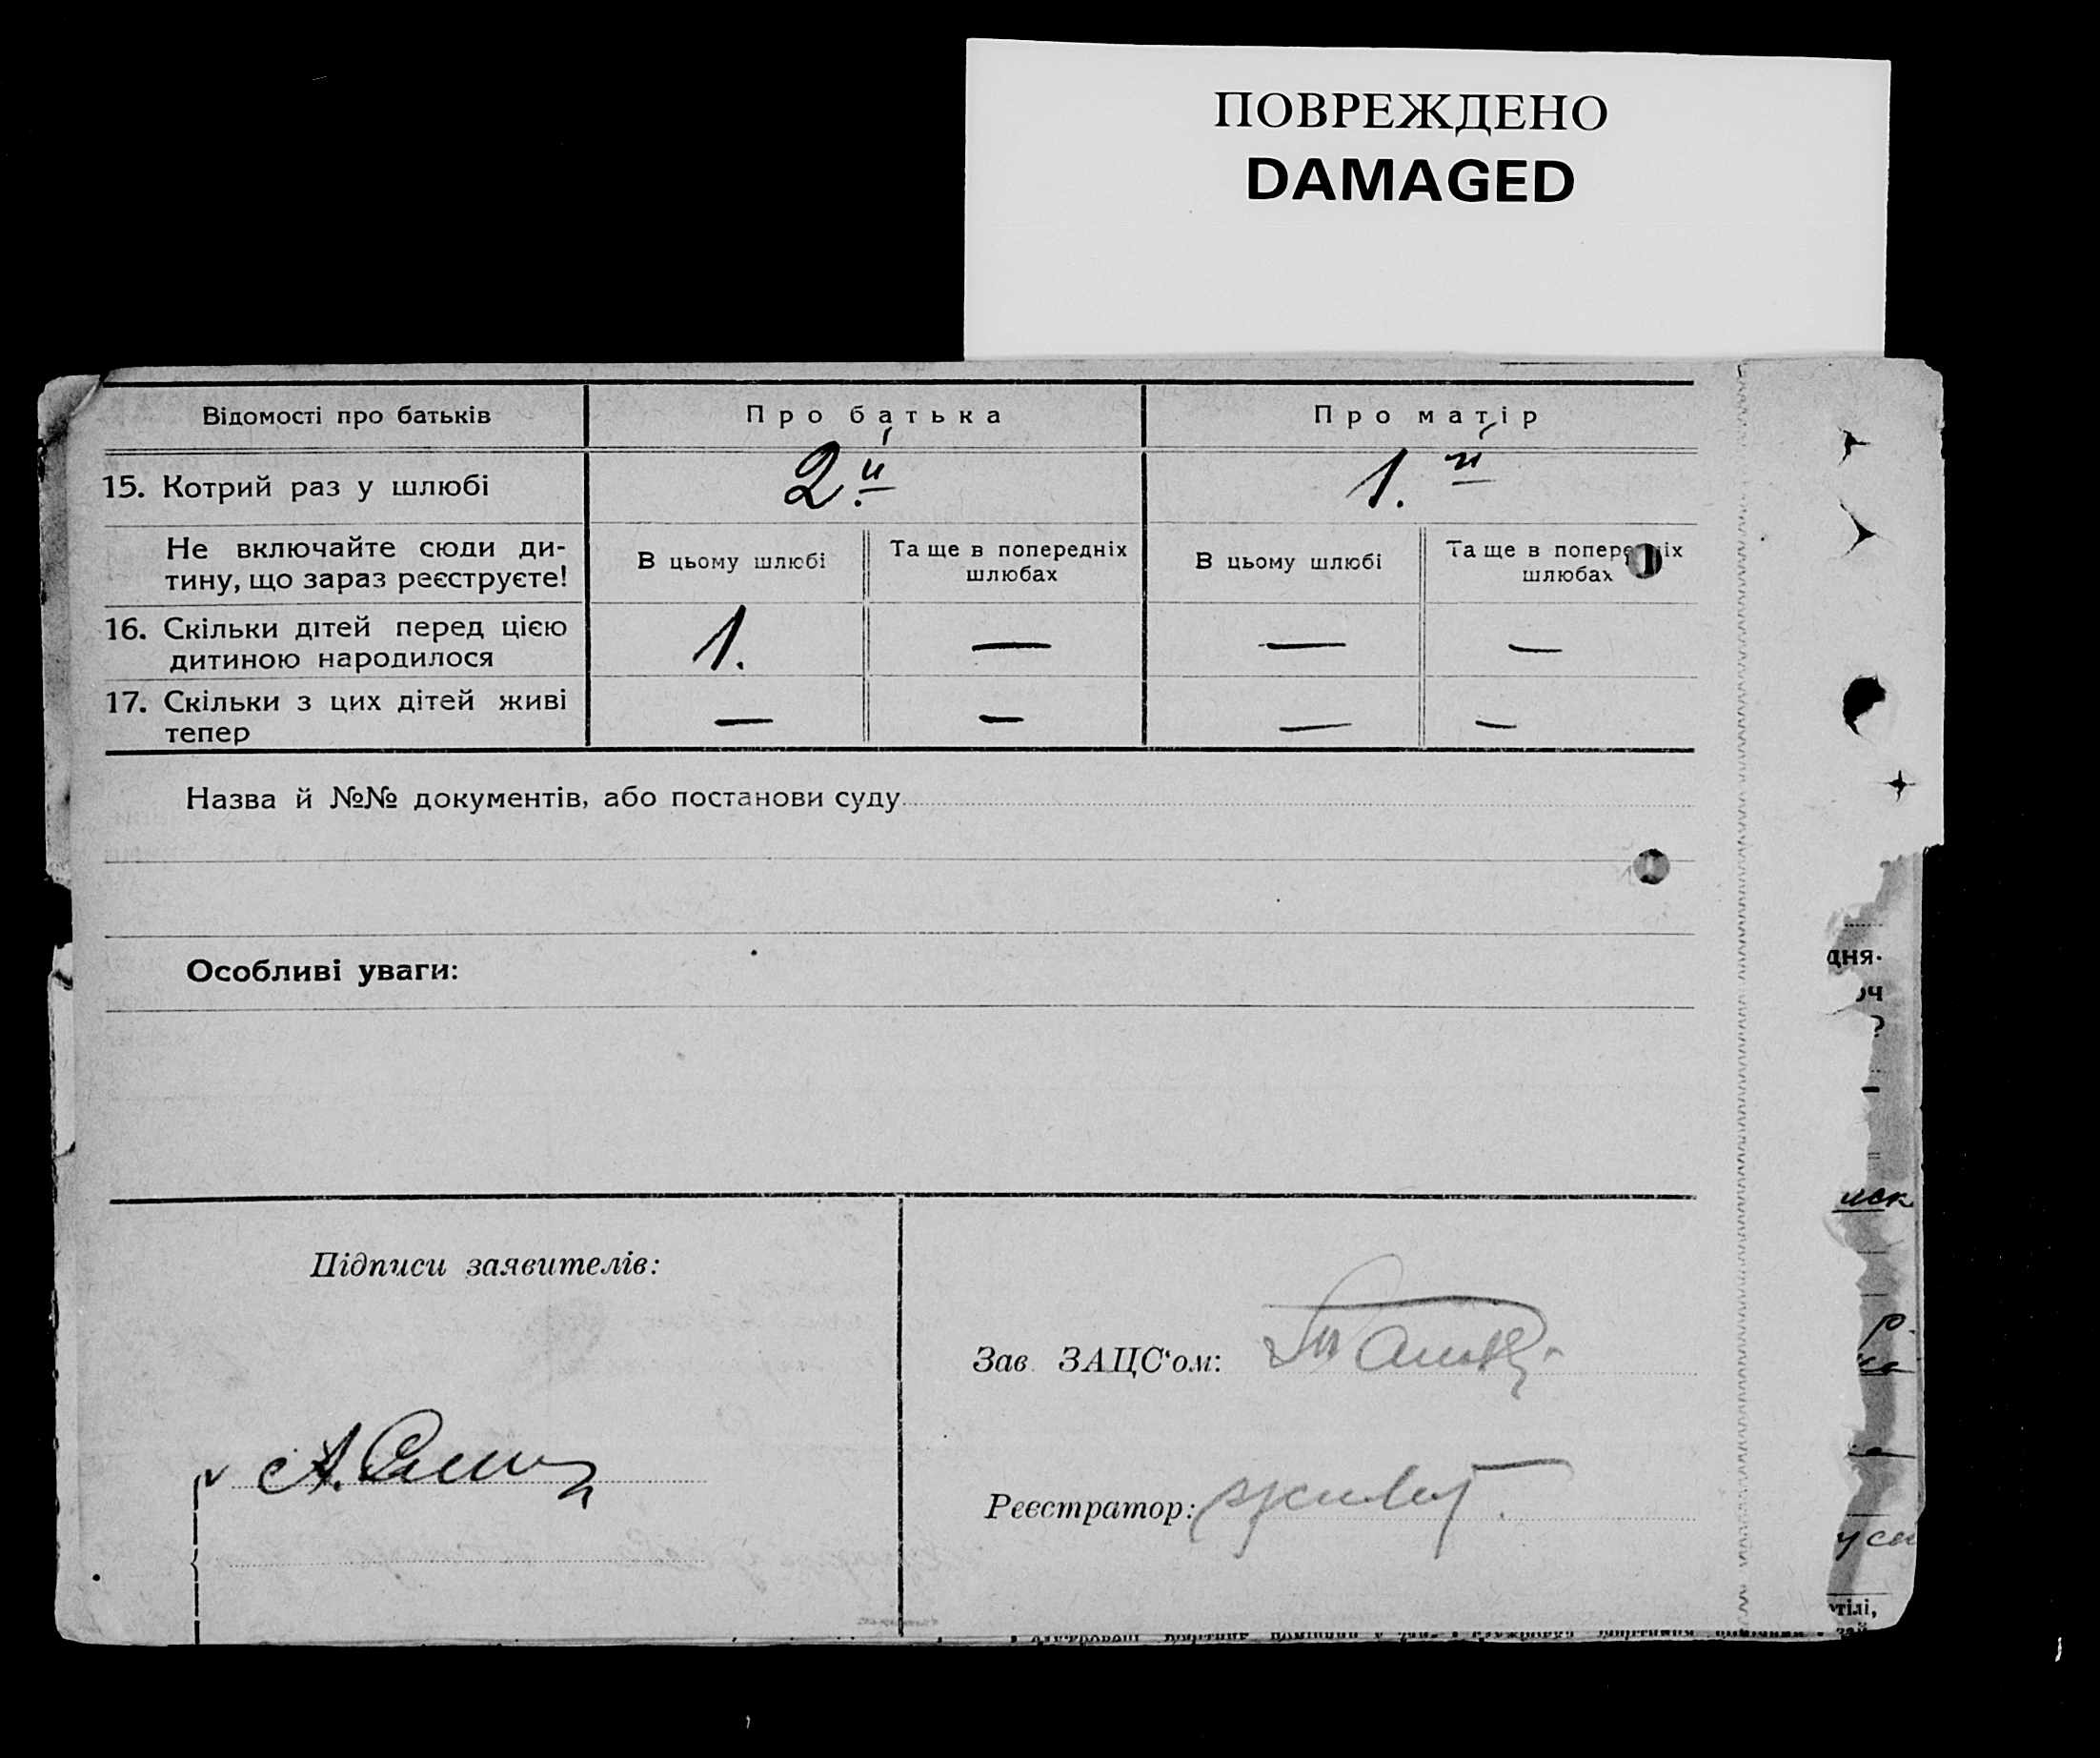 ПОВРЕЖДЕНО
DAMAGED
Відомості про батьків
Про батька
Про матір
15. Котрий раз у шлюбі
2й
1.й
Не включайте сюди ди-
тину, що зараз реєструєте!
В цьому шлюбі
Та ще в попередніх
шлюбах
В цьому шлюбі
Та ще в попередніх
шлюбах
16. Скільки дітей перед цією
дитиною народилося
1. — — —
17. Скільки з цих дітей живі
тепер
— — — —
Назва й №№ документів, або постанови суду
Особливі уваги:
дня.
оч
?
иск
Підписи заявителів:
Зав. ЗАЦС‘ом:
А.
Реєстратор:
уси
тілі,